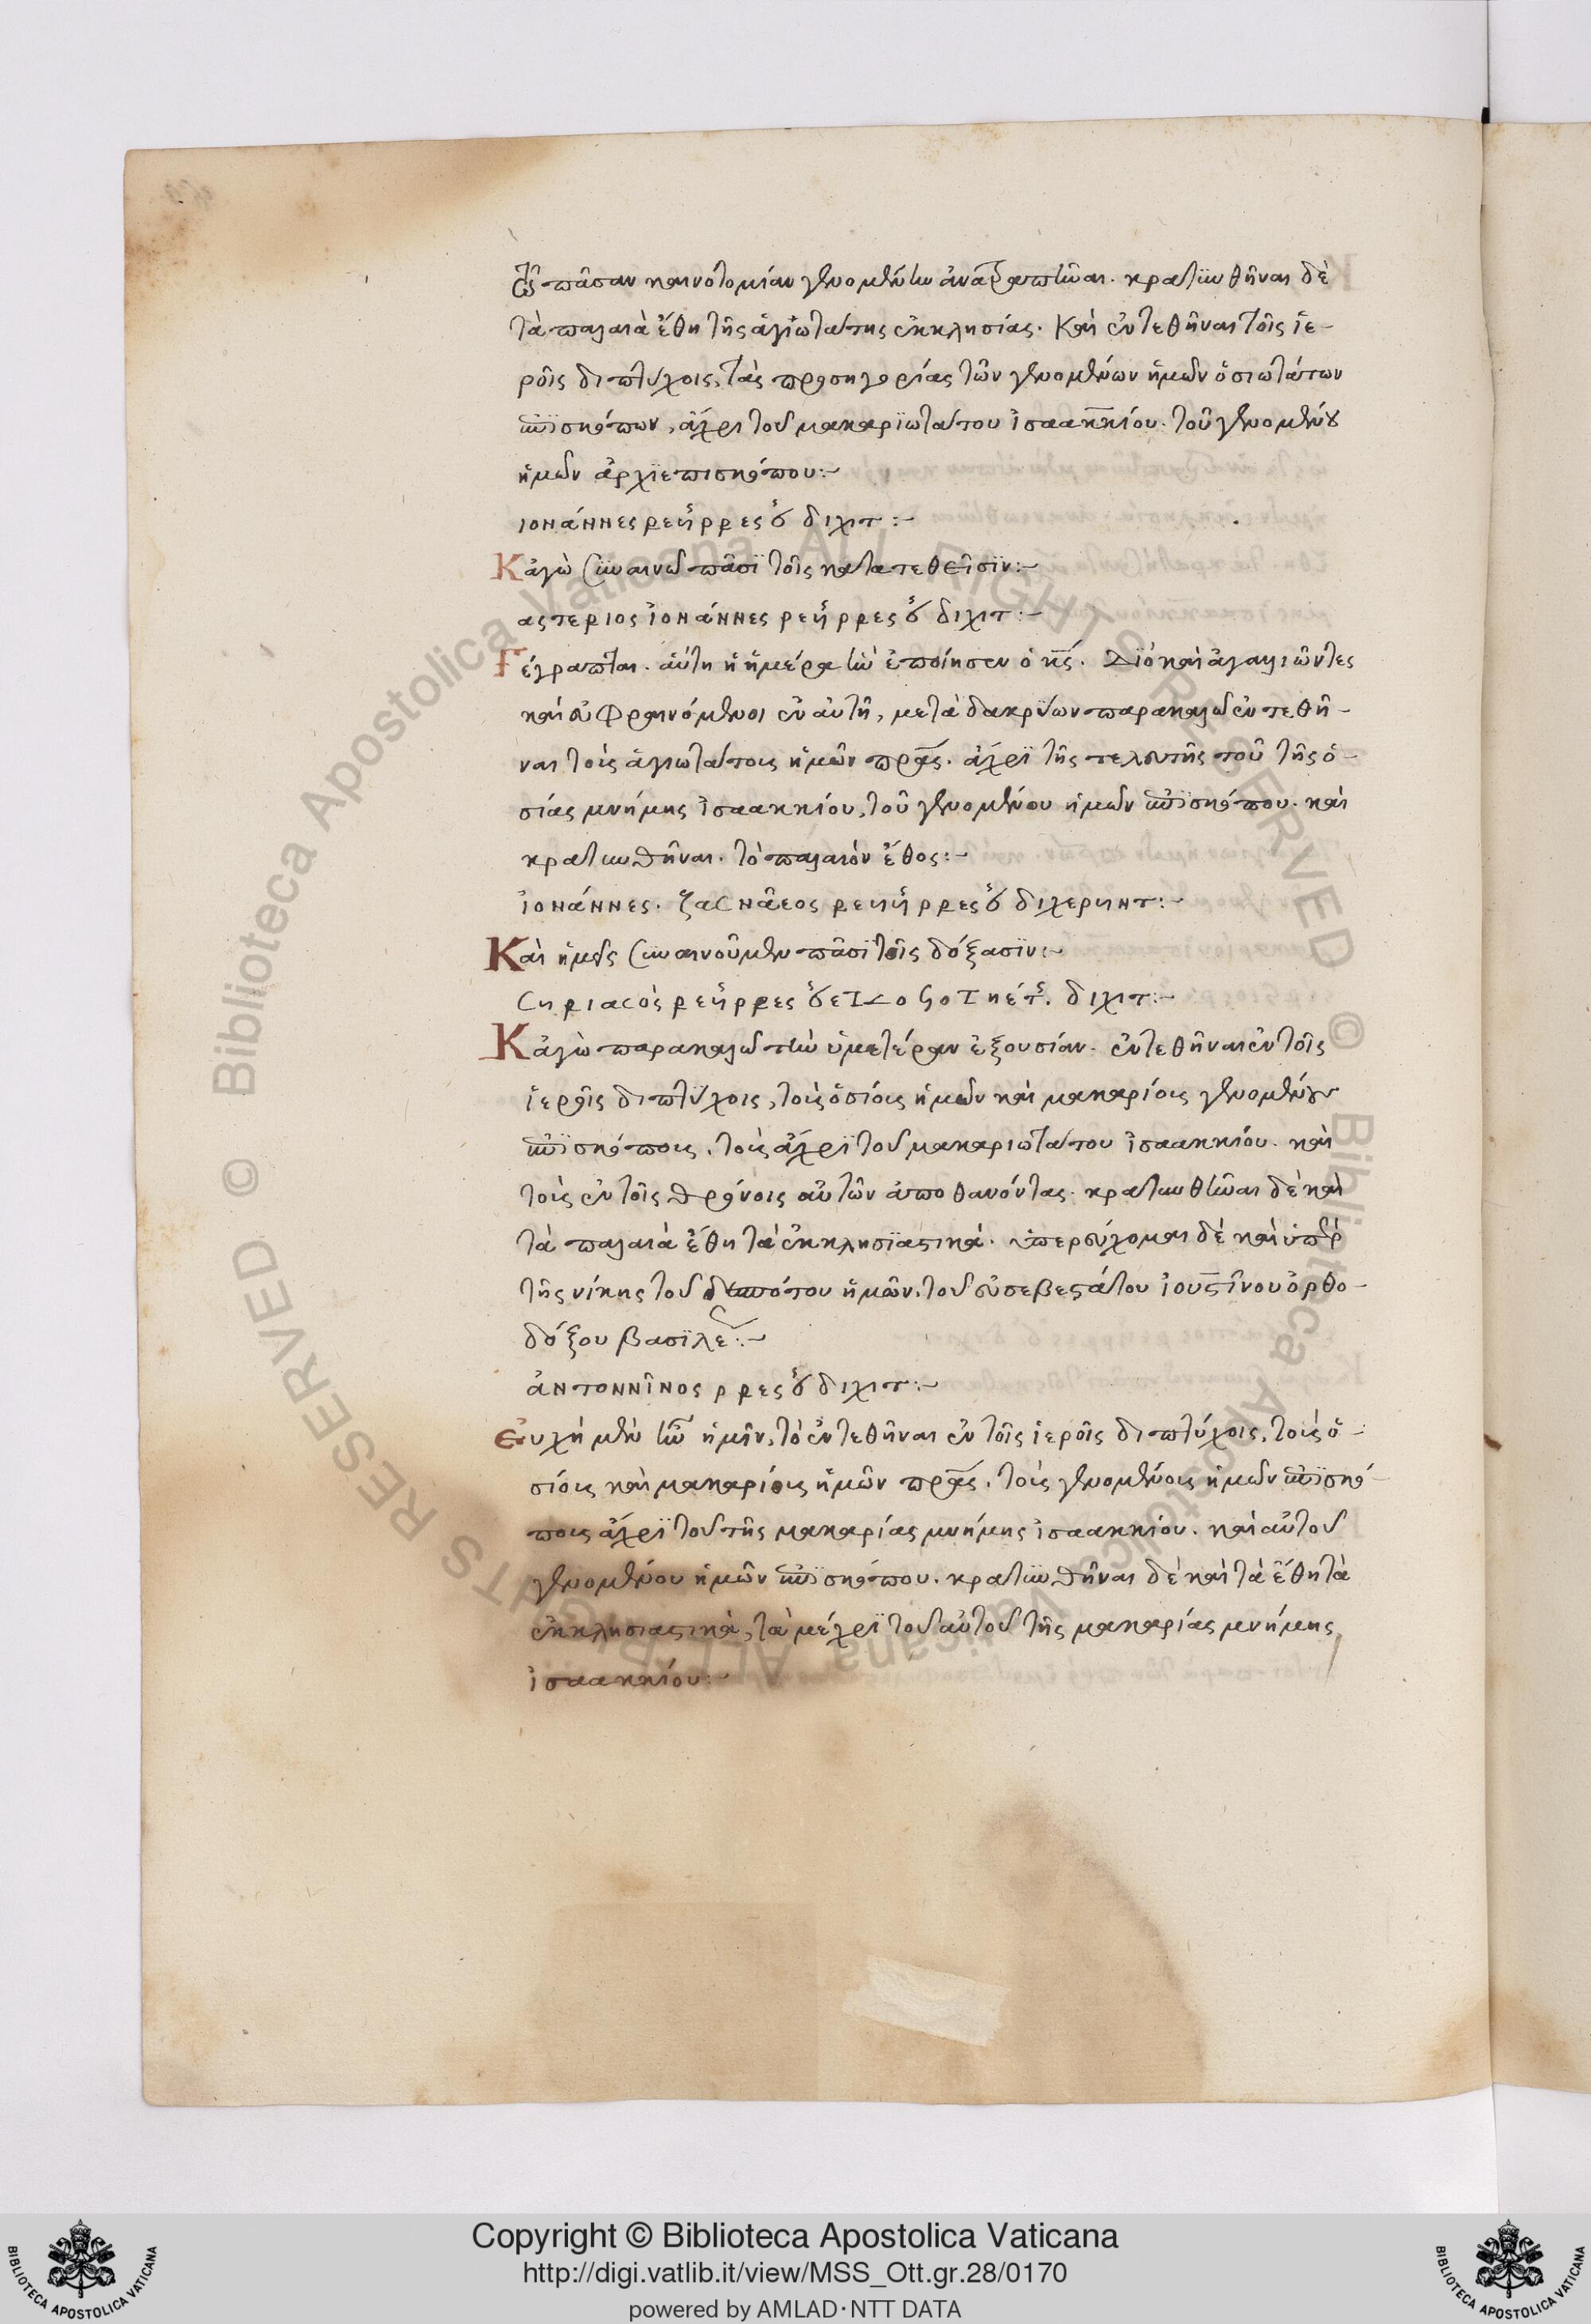 ὥστε πᾶσαν καινοτομίαν γενομένην ἀνατραπῆναι. κρατυνθῆναι δὲ
τὰ παλαιὰ ἔθη τῆς ἁγιωτάτης ἐκκλησίας. Καὶ ἐντεθῆναι τοῖς ἱε-
ροῖς διπτύχοις, τὰς προσηγορίας τῶν γενομένων ἡμῶν ὁσιωτάτων
ἐπισκόπων, ἄχρι τοῦ μακαριωτάτου ἰσαακκίου. τοῦ γενομένου
ἡμῶν ἀρχιεπισκόπου:-
ιοnάnnες διχιτ:-
Κἀγὼ συναινῶ πᾶσι τοῖς κατατεθεῖσιν:-
αςτεριος ἰοnάnnες διχιτ:-
Γέγραπται. αὕτη ἡ ἡμέρα ἣν ἐποίησεν ὁ κς. Διὸ καὶ ἀγαλλιῶντες
καὶ εὐφραινόμενοι ἐν αὐτῇ, μετὰ δακρύων παρακαλῶ ἐντεθῆ-
ναι τοὺς ἁγιωτάτους ἡμῶν πρας. ἄχρι τῆς τελευτῆς τοῦ τῆς ὁ-
σίας μνήμης ἰσαακκίου, τοῦ γενομένου ἡμῶν ἐπισκόπου. καὶ
κρατυνθῆναι. τὸ παλαιὸν ἔθος:-
ἰοnάnnες. διχερηnτ:-
Καὶ ἡμεῖς συναινοῦμεν πᾶσι τοῖς δόξασιν:-
διχιτ:-
Κἀγὼ παρακαλῶ τὴν ὑμετέραν ἐξουσίαν. ἐντεθῆναι ἐν τοῖς
ἱεροῖς διπτύχοις, τοὺς ὁσίους ἡμῶν καὶ μακαρίους γενομένους
ἐπισκόπους. τοὺς ἄχρι τοῦ μακαριωτάτου ἰσαακκίου. καὶ
τοὺς ἐν τοῖς θρόνοις αὐτῶν ἀποθανόντας. κρατυνθῆναι δὲ καὶ
τὰ παλαιὰ ἔθη τὰ ἐκκλησιαστικά. ὑπερεύχομαι δὲ καὶ ὑπὲρ
τῆς νίκης τοῦ δεσπότου ἡμῶν, τοῦ εὐσεβεστάτου ἰουστίνου ὀρθο-
δόξου βασιλέως:-
ἀnτοnnῖnος διχιτ:-
Εὐχὴ μὲν ἦν ἡμῖν, τὸ ἐντεθῆναι ἐν τοῖς ἱεροῖς διπτύχοις, τοὺς ὁ-
σίους καὶ μακαρίους ἡμῶν πρας. τοὺς γενομένους ἡμῶν ἐπισκό-
πους ἄχρι τοῦ τῆς μακαρίας μνήμης ἰσαακκίου. καὶ αὐτοῦ
γενομένου ἡμῶν ἐπισκόπου. κρατυνθῆναι δὲ καὶ τὰ ἔθη τὰ
ἐκκλησιαστικὰ, τὰ μέχρι τοῦ αὐτοῦ τῆς μακαρίας μνήμης
ἰσαακκίου:-
Copyright © Biblioteca Apostolica Vaticana
http://digi.vatlib.it/view/MSS_Ott.gr.28/0170
powered by AMLAD·NTT DATA